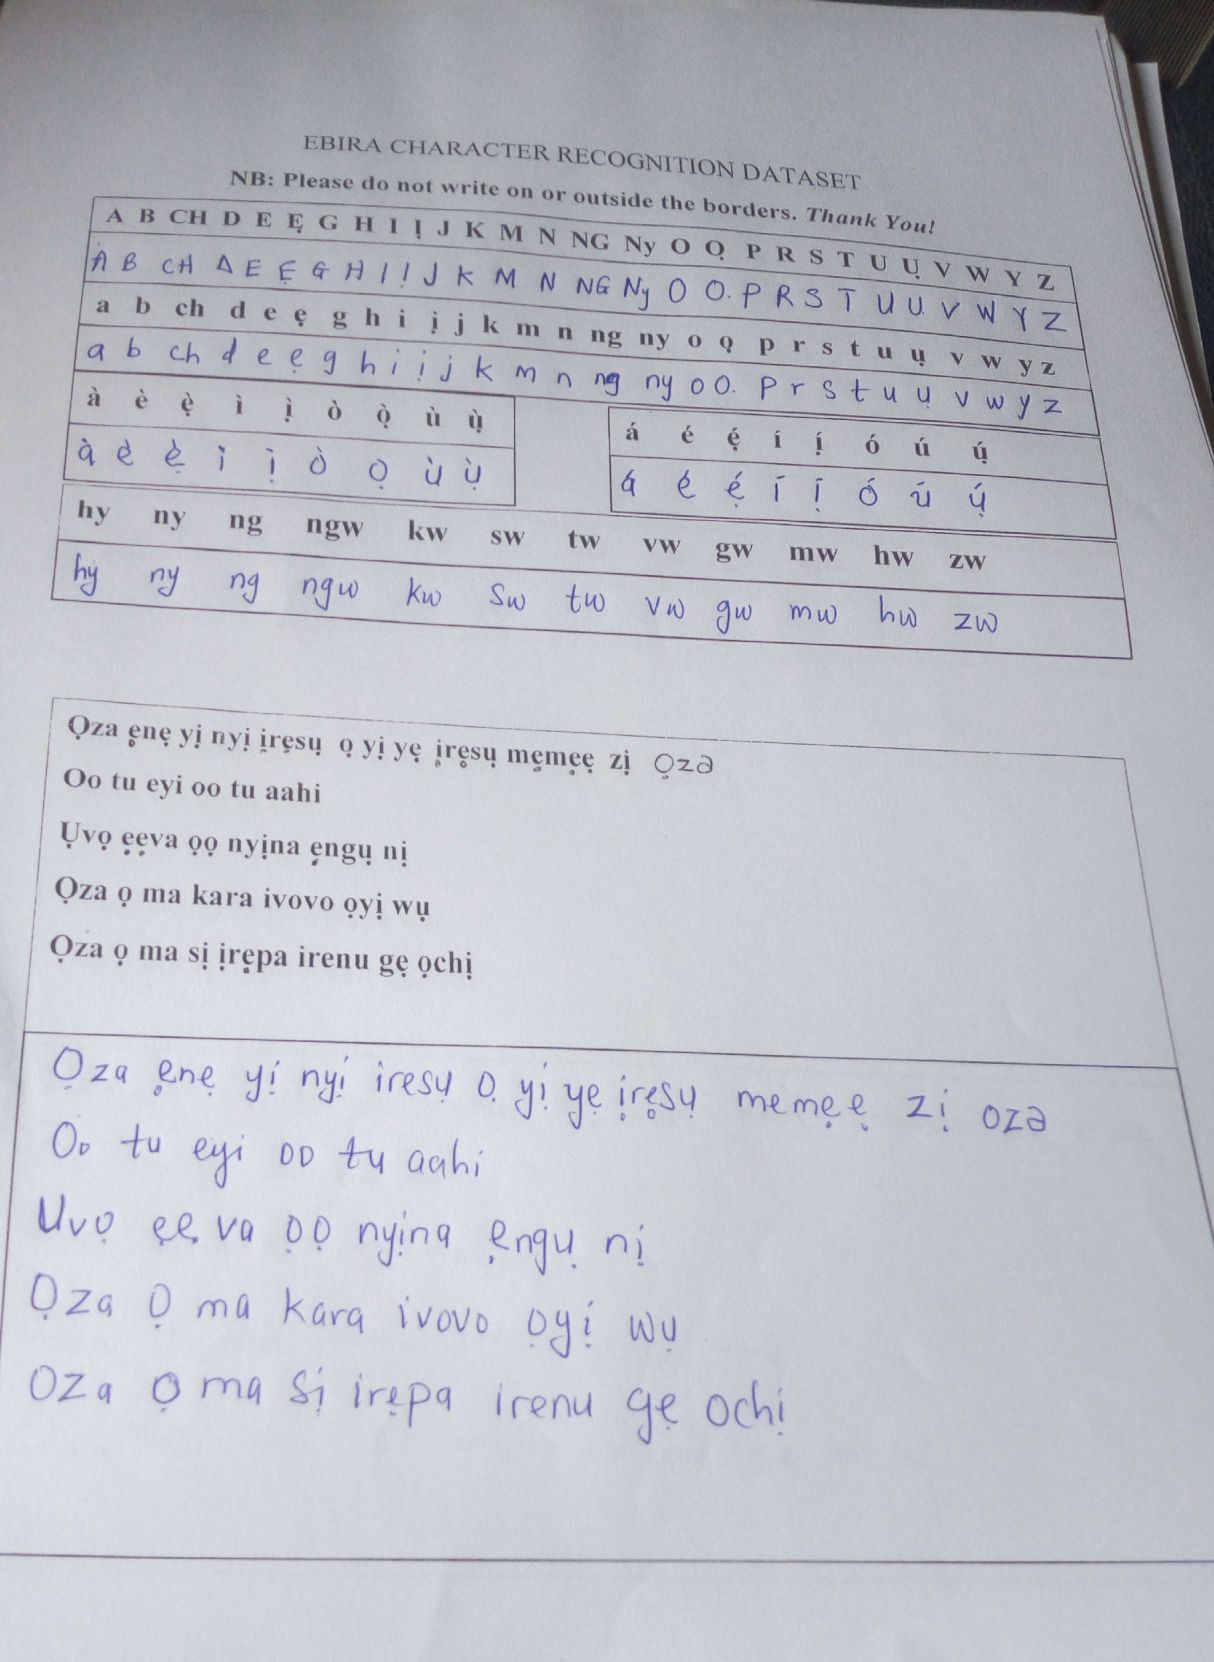 EBIRA CHARACTER RECOGNITION DATASET
NB: Please do not write on or outside the borders. Thank You!
A B CH D E Ẹ G H I Ị J K M N NG Ny O Ọ P R S T U Ụ V W Y Z
A B CH D E Ẹ G H I Ị J K M N NG Ny O O. P R S T U U. V W Y Z
a b ch d e ẹ g h i ị j k m n ng ny o ọ p r s t u ụ v w y z
a b ch d e ẹ g h i ị j k m n ng ny o o. p r s t u ụ v w y z
à è ẹ̀ ì ị̀ ò ọ̀ ù ụ̀
á é ẹ́ í ị́ ó ú ụ́
à è ẹ̀ ì ị̀ ò ọ ù ụ̀
á é ẹ́ í ị́ ó ú ụ́
hy ny ng ngw kw sw tw vw gw mw hw zw
hy ny ng ngw kw sw tw vw gw mw hw zw
Ọza ẹnẹ yị nyị ịrẹsụ ọ yị yẹ ịrẹsụ mẹmẹẹ zị Ọzə
Oo tu eyi oo tu aahi
Ụvọ ẹẹva ọọ nyịna ẹngụ nị
Ọza ọ ma kara ivovo ọyị wụ
Ọza ọ ma sị ịrẹpa irenu gẹ ọchị
Ọza ẹnẹ yị nyị iresụ Ọ yị yẹ ịrẹsụ memẹẹ zị ozə
Oo tu eyi oo tu aahi
Uvọ ẹẹ va ọọ nyịna ẹngụ nị
Ọza Ọ ma kara ivovo ọyị wụ
Oza ọ ma sị irẹpa irenu gẹ ochị